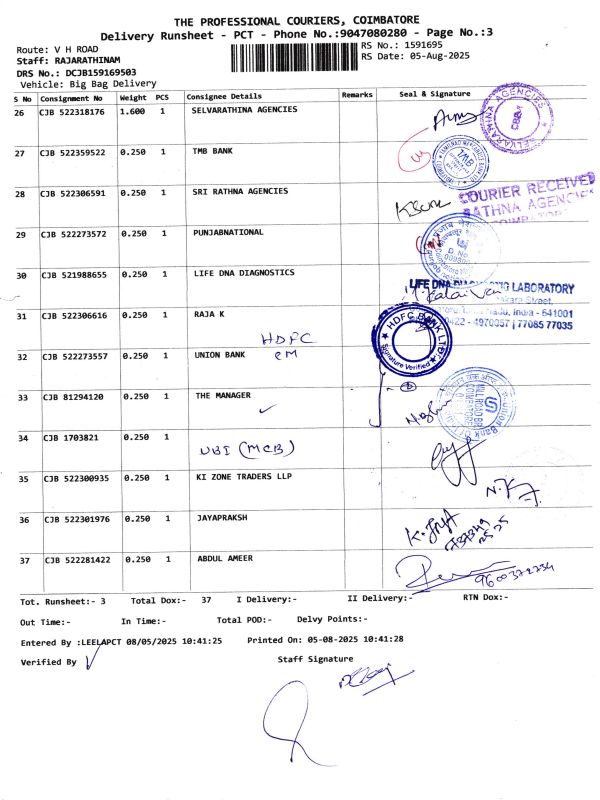 THE PROFESSIONAL COURIERS, COIMBATORE
Delivery Runsheet - PCT - Phone No.:9047080280 - Page No.:3
Route: V H ROAD
RS No.: 1591695
Staff: RAJARATHINAM
RS Date: 05-Aug-2025
DRS No.: DCJB159169503
Vehicle: Big Bag Delivery
S No Consignment No Weight PCS Consignee Details Remarks Seal & Signature
26 CJB 522318176 1.600 1 SELVARATHINA AGENCIES
27 CJB 522359522 0.250 1 TMB BANK
TMB
28 CJB 522306591 0.250 1 SRI RATHNA AGENCIES
COURIER RECEIVED
RATHNA AGENCIES
29 CJB 522273572 0.250 1 PUNJABNATIONAL
30 CJB 521988655 0.250 1 LIFE DNA DIAGNOSTICS
LIFE DNA DIAGNOSTIC LABORATORY
Street,
India - 641001
0422 - 4970057 | 77085 77035
31 CJB 522306616 0.250 1 RAJA K
HDFC
HDFC BANK LTD
Signature Verified
32 CJB 522273557 0.250 1 UNION BANK
CM
33 CJB 81294120 0.250 1 THE MANAGER
34 CJB 1703821 0.250 1
UBI (MCB)
35 CJB 522300935 0.250 1 KI ZONE TRADERS LLP
36 CJB 522301976 0.250 1 JAYAPRAKSH
37 CJB 522281422 0.250 1 ABDUL AMEER
Tot. Runsheet:- 3 Total Dox:- 37 I Delivery:- II Delivery:- RTN Dox:-
Out Time:- In Time:- Total POD:- Delvy Points:-
Entered By :LEELAPCT 08/05/2025 10:41:25 Printed On: 05-08-2025 10:41:28
Verified By
Staff Signature